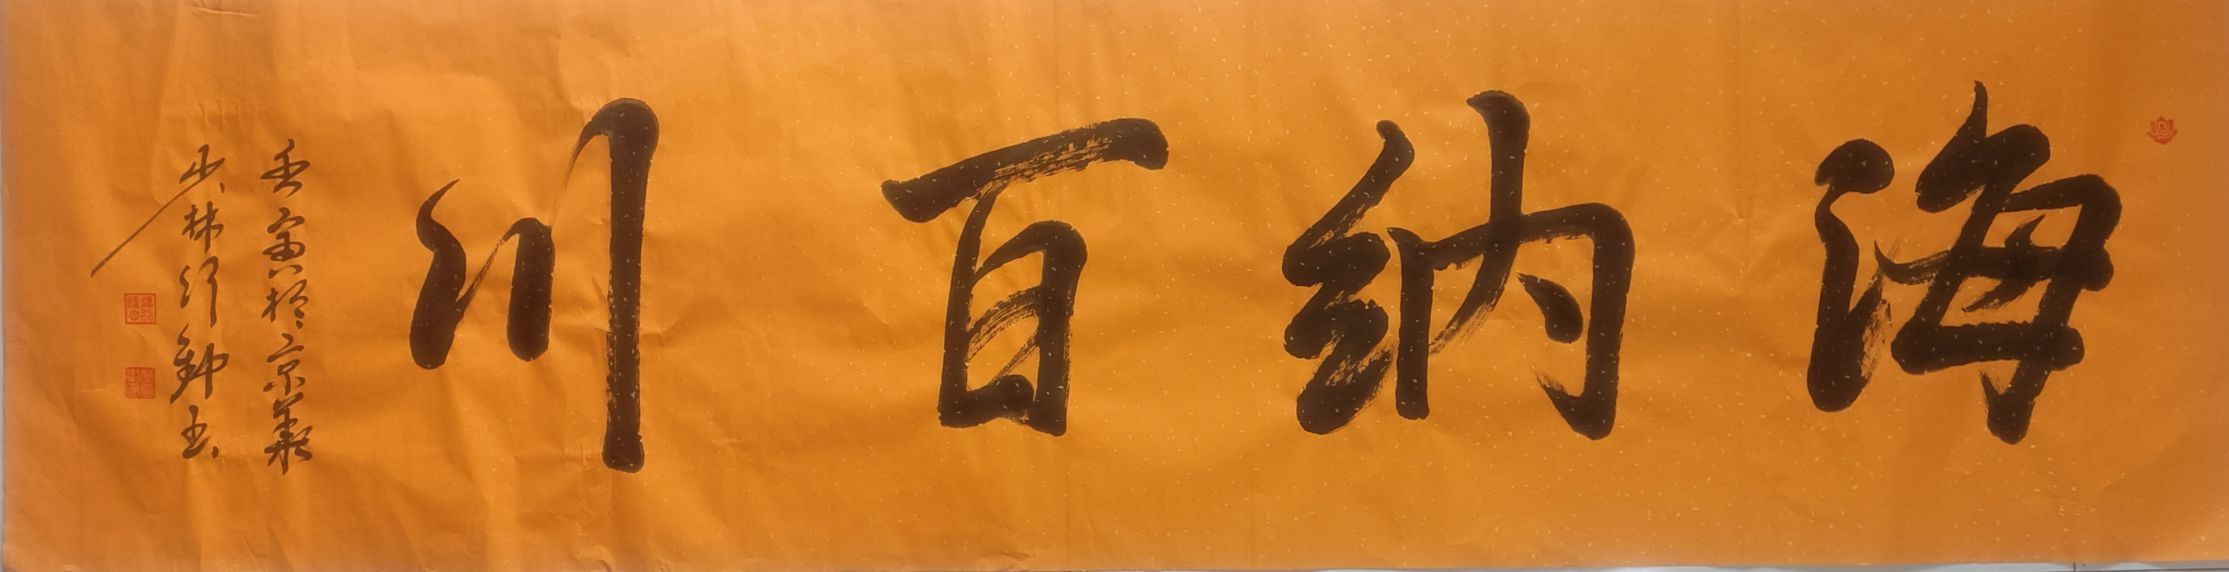 海纳百川
壬寅于京华
少林行勤书